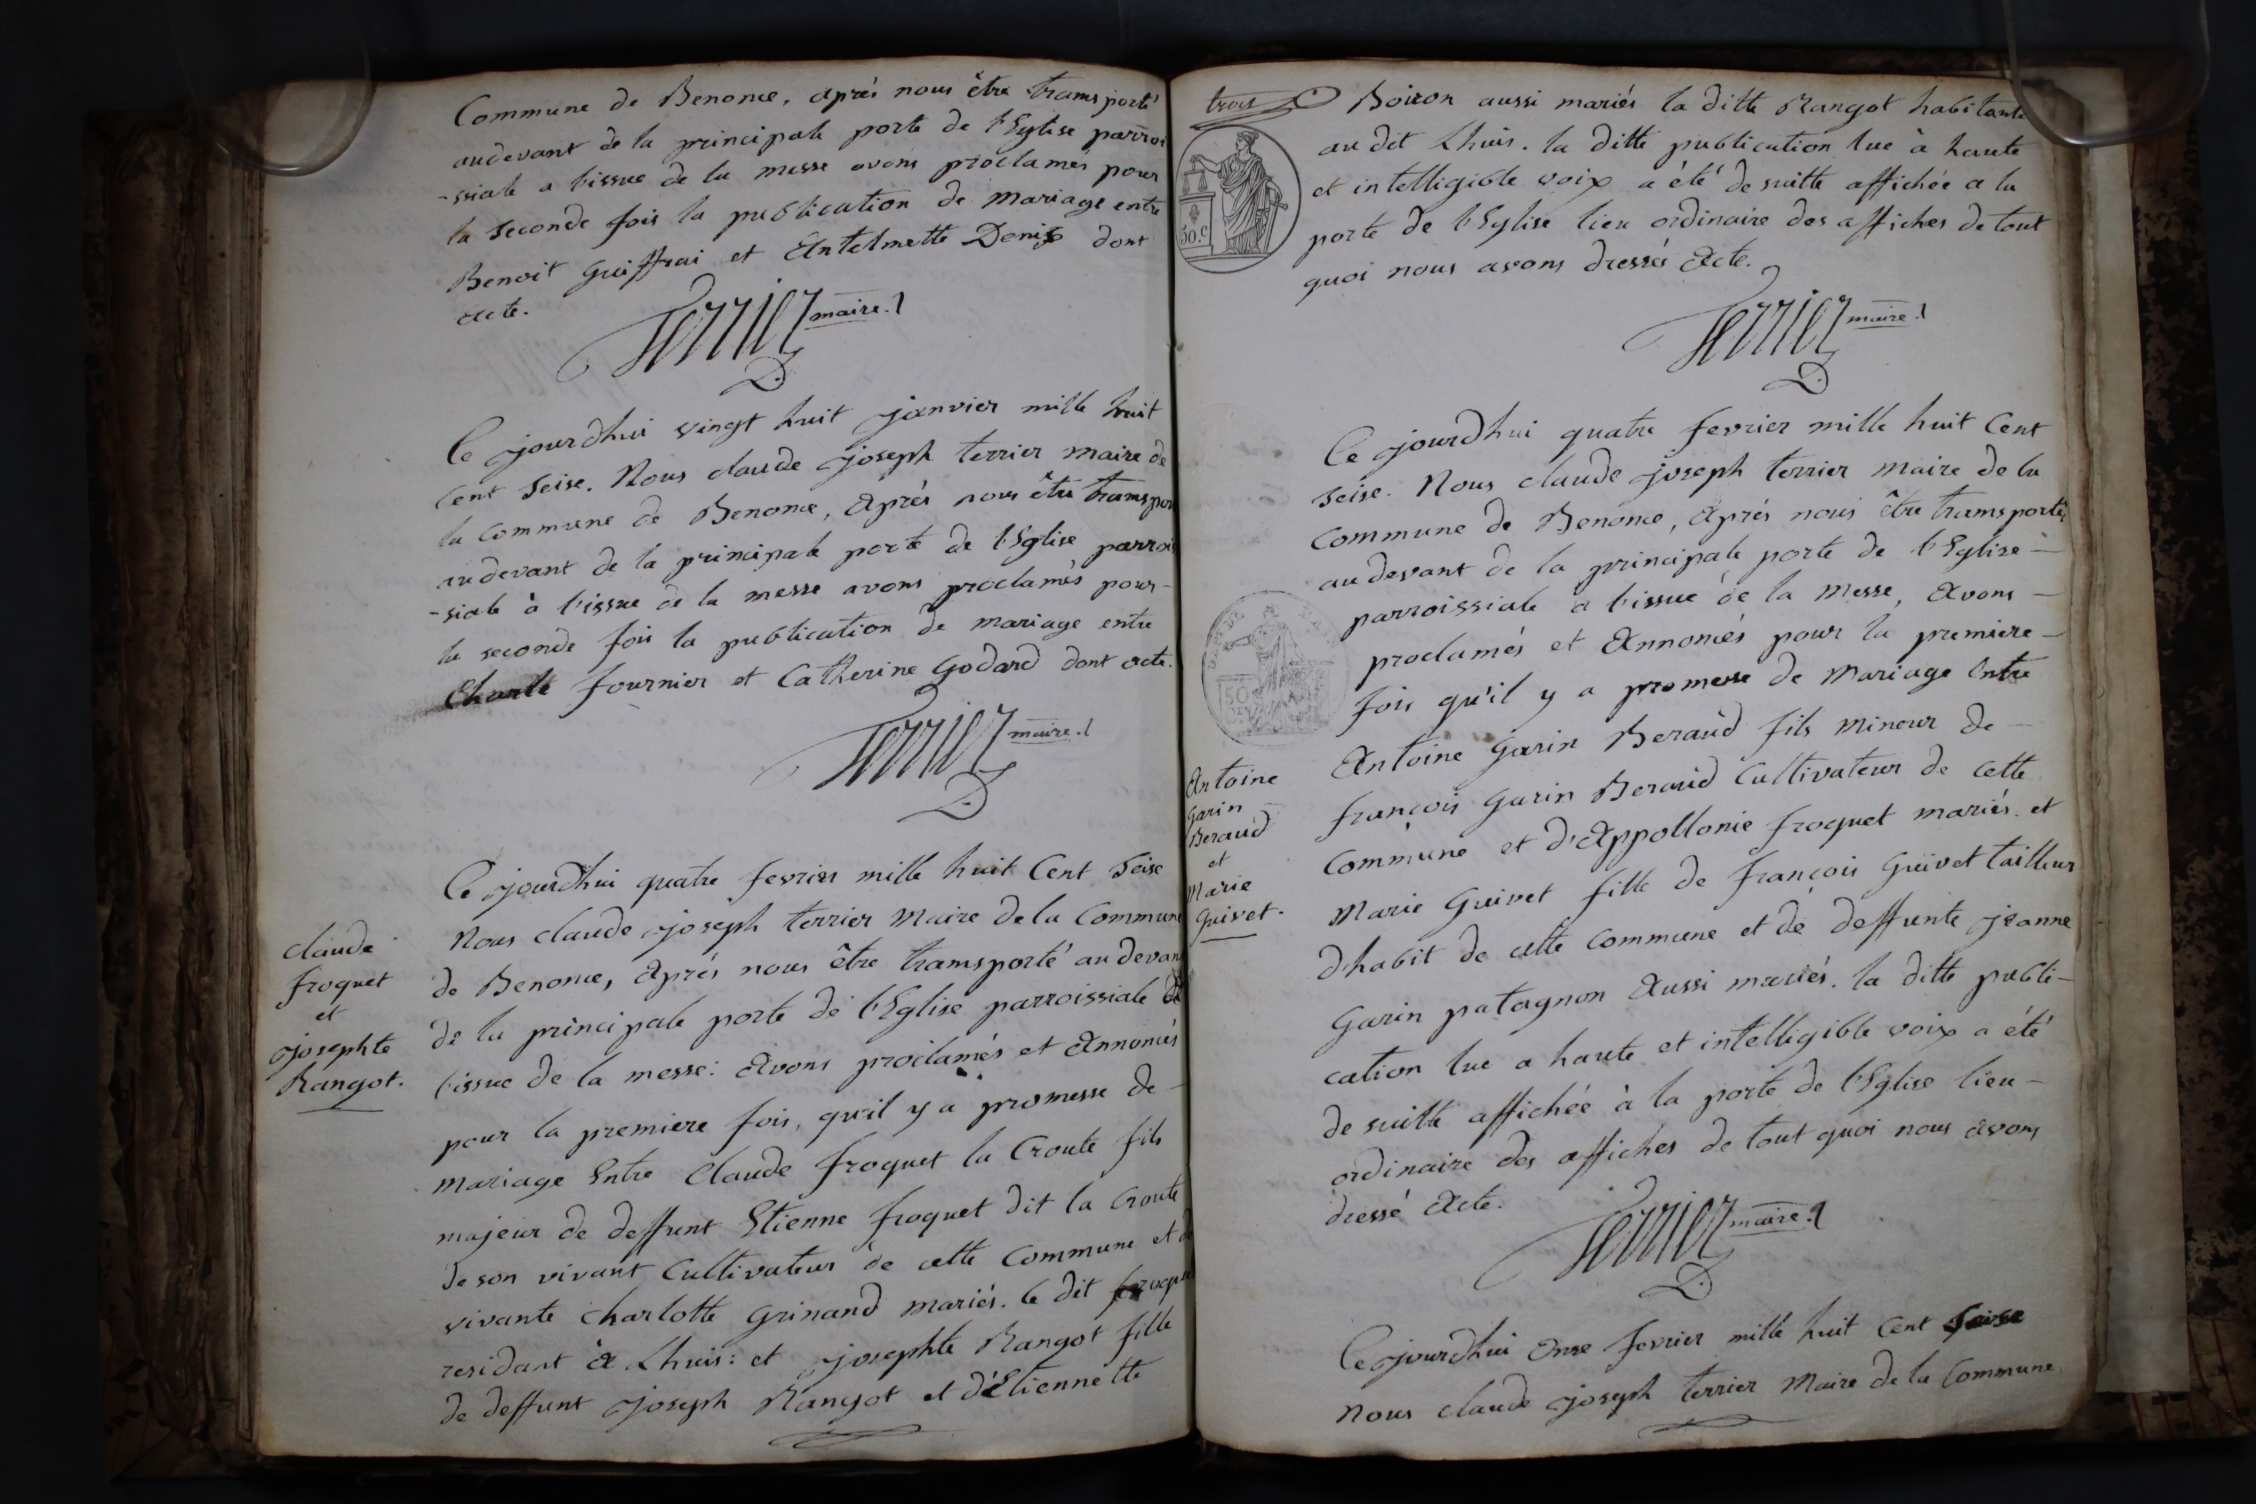 Commune de Benonce, après nous être transporté
audevant de la principale porte de l'Eglise parroi
-ssiale a l'issue de la messe avons proclamés pour
la seconde fois la publication de mariage entre
Benoit Guiffrai et Antelmette Denis dont
acte.
Terrier maire.
Ce jourdhui vingt huit janvier mille huit
cent seise. Nous claude joseph terrier maire de
la commune de Benonce, Après nous être transpor
audevant de la principale porte de l'Eglise parrois
-siale à l'issue de la messe avons proclamés pour-
la seconde fois la publication de mariage entre
Charle fournier et Catherine Godard dont acte.
Terrier maire.
Claude
froquet
et
josephte
Rangot.
Ce jourdhui quatre fevrier mille huit Cent seise
Nous claude joseph terrier Maire de la Commune
de Benonce, Après nous être transporté audevan
de la principale porte de l'Eglise parroissiale
l'issue de la messe: Avons proclamés et Annoncés
pour la premiere fois, qu'il y a promesse de-
mariage Entre Claude froquet la Croute fils
majeur de deffunt Etienne froquet dit la Croute
de son vivant Cultivateur de cette Commune et de
vivante charlotte Grinand mariés. le dit froqu
residant à Lhuis: et josephte Rangot fille
de deffunt joseph Rangot et d'Etiennette
trois
Boiron aussi mariés la ditte Rangot habitante
au dit Lhuis. la ditte publication lue à haute
et intelligible voix a été de suitte affichée a la
porte de l'Eglise lieu ordinaire des affiches de tout
quoi nous avons dressés Acte.
50.c
Terrier maire.
Ce jourdhui quatre fevrier mille huit Cent
seise. Nous claude joseph terrier maire de la
commune de Benonce, Après nous être transportés
au devant de la principale porte de l'Eglise-
parroissiale a l'issue de la Messe, Avons-
proclamés et Annoncés pour la premiere-
fois qu'il y a promesse de Mariage Entre
Antoine Garin Beraud fils Mineur de-
françois Garin Beraud Cultivateur de cette
Commune et d'Appollonie froquet mariés. et
Marie Guivet fille de françois Guivet tailleur
d'habit de cette commune et de deffunte jeanne
Garin patagnon Aussi mariés. la ditte publi-
cation lue a haute et intelligible voix a été
de suitte affichée à la porte de l'Eglise lieu-
ordinaire des affiches de tout quoi nous avons
dressé Acte.
Antoine
Garin
Beraud
et
Marie
Guivet.
Terrier maire.
Ce jourdhui Onse fevrier mille huit Cent seise
Nous claude joseph terrier Maire de la Commune